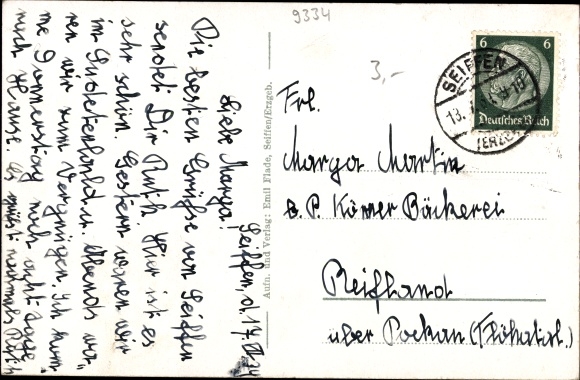 9334
3,-
6 6
Deutsches Reich
SEIFFEN
13.
(ERZGEB.
Seiffen, d. 17.
Liebe Marga!
Die besten Grüße von Seiffen
sendet Dir Ruth. Hier ist es
sehr schön. Gestern waren wir
im Sudetenland. Abends
wir zum Vergnügen. Ich kom
me Donnerstag noch nicht
nach Hause. Es grüßt nochmals Ruth
Aufn. und Verlag: Emil Flade, Seiffen/Erzgeb.
Frl.
Marga Martin
b. P. Körner Bäckerei
Reifland
über Pockau (Flöhatal.)